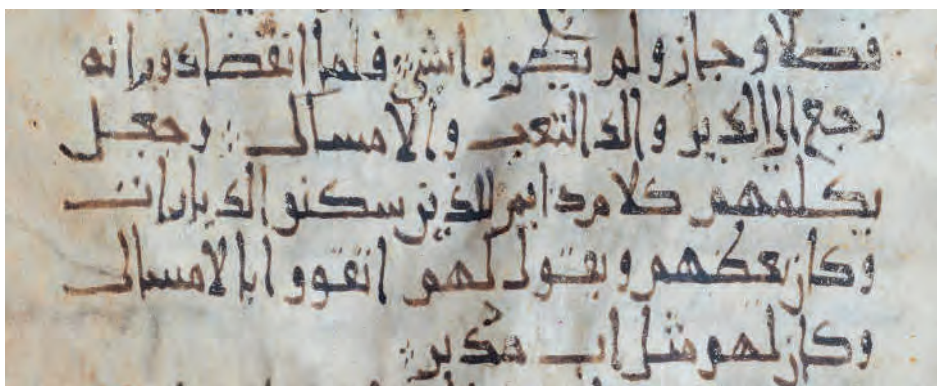 فصلا وجاز ولم فلما انقضا دورانه
رجع الى الدير والى التعب والامساك ؛ وجعل
يكلمهم كلام دايم للذين سكنو الديارات
وكان يعظهم ويقول لهم اتقووا بالامساك
وكان لهم مثل اب مدبر ؛